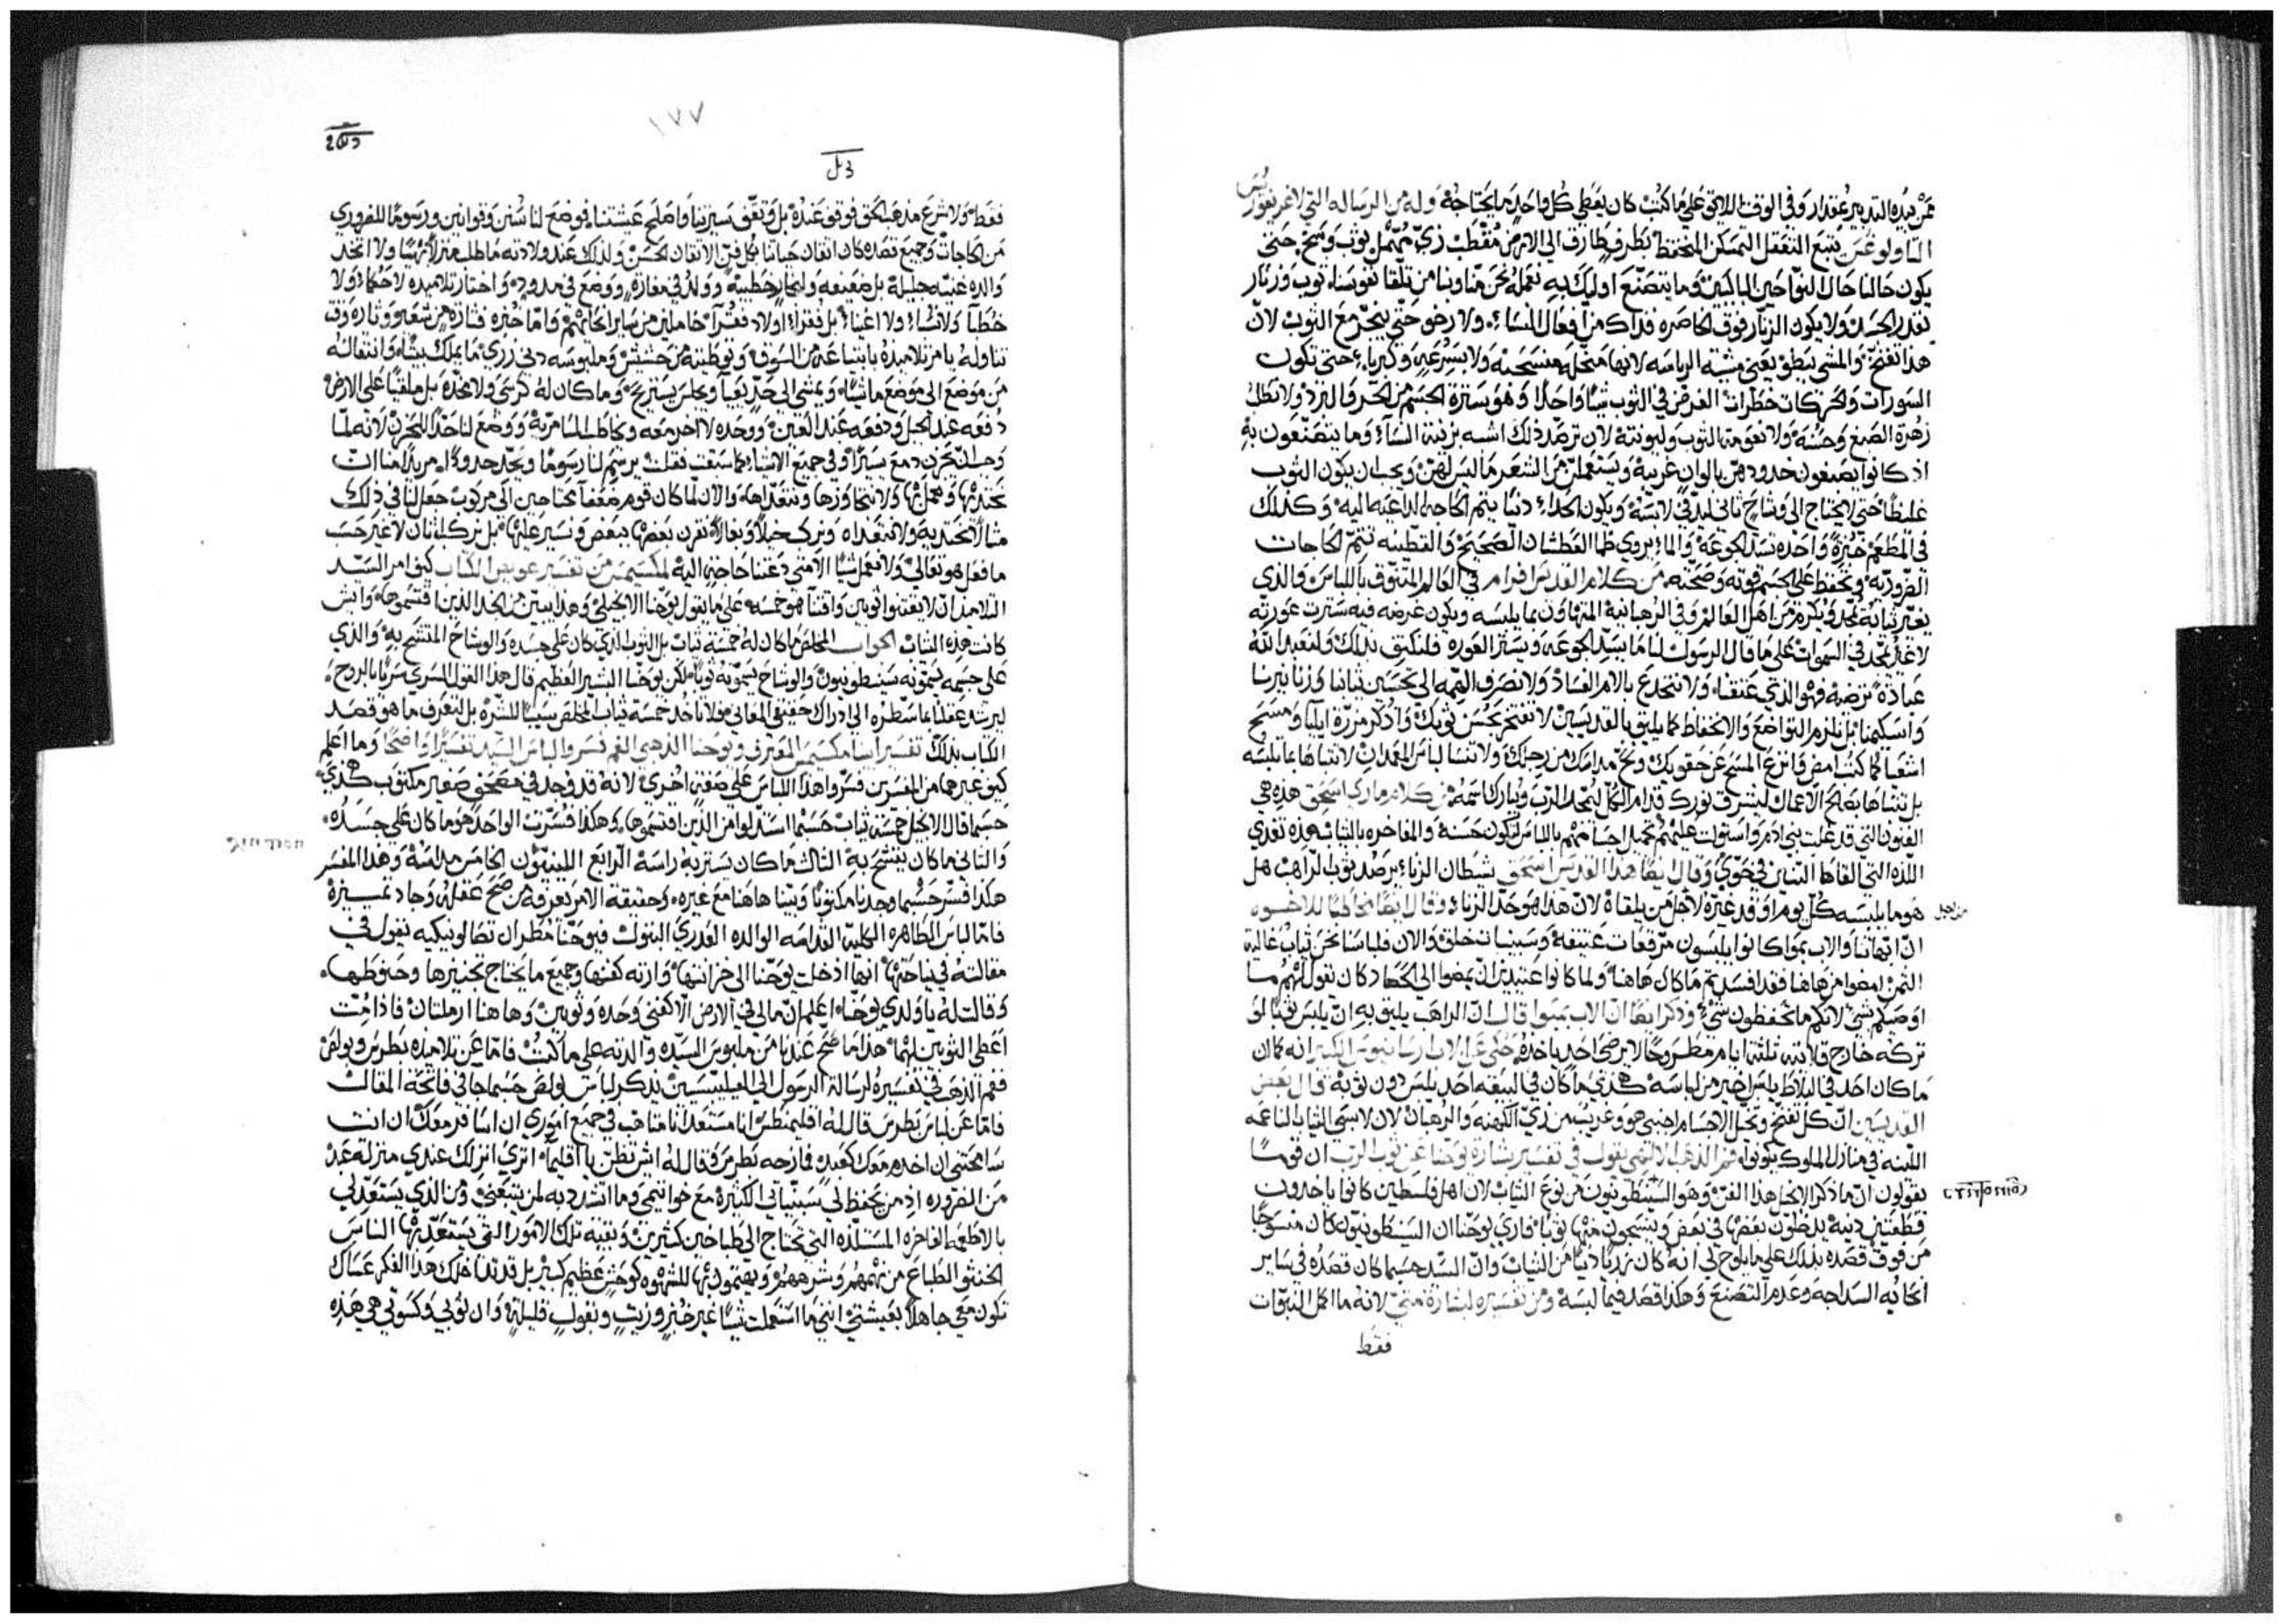 ممن بيده التدبير بمقدار وفي الوقت اللايق على ما كتب كان يعطى كل واحد ما يحتاجه وله من الرساله التي لاغريغوريس
الثاولوغس يتبع التعقل التمسكن المتحفظ بطرف طارف الى الارض مقطب زي مهمل ثوب وسخ حتى
يكون حالنا حال النواحين الباكين وما يتصنع اوليك به نعمله نحن من تلقا نفوسنا ثوب وزنار
بقدر الجسد ولا يكون الزنار فوق الخاصره فذاك من افعال النساء ولا رخو حتى ينجر مع الثوب لان
هذا تفتح والمشي يبطو يعني مشية الرياسه لانها ولا بسرعه وكبرياء حتى تكون
السورات والحركات خطرات الغرض في الثوب شيا واحدا وهو سترة الجسم من الحر والبرد ولا تطلب
زهرة الصبغ وحسنه ولا نعومة الثوب وليونته لان ترصد ذلك اشبه بزينة النساء وما يتصنعون به
اذ كانوا يصبغون خدودهن بالوان غريبة ويستعملن من الشعر ما ليس لهن ويجب ان يكون الثوب
غليظا حتى لا يحتاج الى وشاح ثاني ليدفي لابسه ويكون الحذاء دنيا يتم الحاجه الداعيه اليه وكذلك
في المطعم خبزة واحده تسد الجوعة والماء يروي ظما العطشان الصحيح والقطنيه تتمم الحاجات
الضروريه وتحفظ على الجسم قوته وصحته من كلام القديس افرام في العالم المتنوق باللباس والذي
يغير ثيابه يمجد ويكرم من اهل العالم وفي الرهبانية المتهاون بما يلبسه ويكون غرضه فيه سترت عورته
لا غير يمجد في السموات على ما قال الرسول لنا ما يسد الجوعه ويستر العوره فلنكتف بذلك ولنعبد الله
عبادة ترضيه فهو الذي عتقنا ولا ننخدع بالامر الفساد ولا نصرف الهمه الى تحسين ثيابنا وزنانيرنا
واسكيمنا بل نلزم التواضع والانحفاظ كما يليق بالقديسين لا تفتخر بحسن ثوبك واذكر مزرة ايليا ومسح
اشعيا كما كتب امض فانزع المسح عن حقويك ونح مداسك من رجلك ولا تنسا لباس المعمدان لا تتباها بما تلبسه
بل تتباها بصالح الاعمال ليشرق نورك قدام الكل ليمجد الرب ويبارك اسمه من كلام ماري اسحق هذه هي
الفنون التي قد غلبت بني ادم واستولت عليهم تجميل اجسامهم باللباس لتكون حسنة والمفاخره بالثياب هذه تغذي
اللذه التي القاها التنين في حوي وقال ايضا هذا القديس اسحق شيطان الزناء يرصد ثوب الراهب هل
هو ما يلبسه كل يوم او قد غيره لاجل من يلقاه لان هذا هو حد الزناء وقال ايضا مخاطبا للاخوه
من اجل
ان ابهاتنا والاب بموا كانوا يلبسون مرقعات عتيقة وسبنيات خلق والان فلباسنا نحن ثياب غالية
الثمن امضوا من هاهنا فقد افسدتم ما كان هاهنا ولما كانوا عتيدين ان يمضوا الى الحصاد كان يقول لهم ما
اوصيكم بشي لانكم ما تحفظون شيء وذكر ايضا ان الاب بمبوا قال ان الراهب يليق به ان يلبس ثوبا لو
تركه خارج قلايته ثلثة ايام مطروحا لا يرضى احد ياخذه حكي عن الاب ارسانيوس الكبير انه كان
ما كان احد في البلاط يلبس اخير من لباسه هكذي ما كان في البيعه احد يلبس دون ثوبه قال بعض
القديسين ان كل تفتح وتحل الاجسام اجنبي هو وغريب من زي الكهنه والرهبان لان لابسي الثياب الناعمه
اللينه في منازل الملوك يكونوا فم الذهب اللاهي يقول في تفسير بشارة يوحنا عن ثوب الرب ان قوما
يقولون انما ذكر الانجيل هذا الفن وهو السينطونيون من نوع الثياب لان اهل فلسطين كانوا ياخذون
قطعتين دنيه يدخلون بعضها في بعض وينسجون منها ثوبا فاري يوحنا ان السينطونيون كان منسوجا
من فوق قصده بذلك على ما يلوح لي انه كان زريا دنيا من الثياب وان السيد حسبما كان قصده في ساير
انحايه السذاجه وعدم التصنع وهكذا قصد فيما لبسه ومن تفسيره لبشارة متى لانه ما اكمل النبوات
فقط
١٧٧
فقط ولا شرع مذهب الحق فوقف عنده بل وثقف سيرتنا واصلح عيشتنا فوضع لنا سنن وقوانين ورسوما للضروري
من الحاجات وجميع قصده كان اتقان حياتنا بكل فن الاتقان الحسن ولذلك عند ولادته ما طلب منزلا بهيا ولا اتخذ
والده غنيه جليلة بل ضعيفه ولنجار خطيبة وولد في مغارة ووضع في مدود واختار تلاميذه لا حكماء ولا
خطبآ ولا نساء ولا اغنياء بل فقراء اولاد فقرآ خاملين من ساير انحايهم واما خبزه فتارة من شعير وتاره وقت
تناوله يامر تلاميذه بابتياعه من السوق وتوطيته من حشيش وملبوسه دني زري ما يملك بيتا وانتقاله
من موضع الى موضع ماشيا ويمشي الى حد يعيآ ويجلس يستريح وما كان له كرسي ولا مخدة بل ملقيا على الارض
دفعه عند الجبل ودفعه عند العين ووحده لا اخر معه وخاطب السامرية ووضع لنا حدا للحزن لانه لما
وجب التحزن دمع يسيرا وفي جميع الاشياء كما سبقت فقلت يرسم لنا رسوما ويحد حدودا مريدا منا ان
نحتذيها ونعمل بها ولا نتجاوزها ونتعداها والان لما كان قوم ضعفآ محتاجين الى مركوب جعل لنا في ذلك
مثالا نحتذي به ولا نتعداه ونركب خيلا وبغالا نقرن بعضها ببعض ونسير عليها بل نركب اتان لا غير حسب
ما فعل هو تعالى ولا نعمل شيا الا متى دعتنا حاجة اليه لمكسيمس من تفسير عويص الكتاب كيف امر السيد
التلاميذ ان لا يقتنوا ثوبين واقتنا هو خمسه على ما يقول يوحنا الانجيلي وهذا يبين من الجند الذين اقتسموها وايش
كانت هذه الثياب الجواب المخلص ما كان له خمسة ثياب بل الثوب الذي كان على جسده والوشاح المتشح به والذي
على جسمه يسمونه سينطونيون والوشاح يسمونه ثوبا لكن يوحنا البشير العظيم قال هذا القول السري سريا بالروح
ليرشد عقلنا بما سطره الى ادراك حقيقي المعاني فلا ناخذ خمسة ثياب المخلص سببا للشره بل لنعرف ما هو قصد
الكتاب بذلك تفسير انبا مكسيمس المعترف ويوحنا الذهبي الفم فسروا لباس السيد تفسيرا واضحا وما اعلم
كيف غيرهما من المفسرين فسروا هذا اللباس على صفة اخرى لانه قد وجد في مصحف صغير مكتوب هكذي
حسبما قال الانجيل خمسة ثياب حسبما استدلوا من الذين اقتسموها وهكذا فسرت الواحد هو ما كان على جسده
والثاني ما كان يتشح به الثالث ما كان يستر به راسه الرابع اللينتيون الخامس مداسه وهذا المفسر
هكذا فسر حسبما وجدنا مكتوبا وبينا هاهنا مع غيره وحقيقة الامر يعرفه من صح عقله وجاد تمييزه
فاما لباس الطاهره الكلية القداسه الوالده العذري البتول فيوحنا مطران تصالونيكيه يقول في
مقالته في نياحتها انها ادخلت يوحنا الى خزانتها وارته كفنها وجميع ما يحتاج تجنيزها وحنوطها
وقالت له يا ولدي يوحنا اعلم ان مالي في الارض الا كفني وحده وثوبين وهاهنا ارملتان فاذا مت
اعطي الثوبين لهما هذا ما صح عندنا من ملبوس السيده والدته على ما كتبت فاما عن تلاميذه بطرس وبولص
ففم الذهب في تفسيره لرسالة الرسول الى الفيليبيسيين يذكر لباس بولص حسبما جا في فاتحة المقالت
فاما عن لباس بطرس قال له اقليمنطس انا مستعد انا متاهب في جميع اموري ان اسافر معك ان انت
سامحتني ان اخدم معك كعبد فازحه بطرس وقال له ايش تظن يا اقليما اترى انزلك عندي منزلة عبد
من الضروره اذ من يحفظ لي سبنياتي الكثيرة مع خواتيمي وما اتشد به لمن يتبعني ومن الذي يستعد لي
بالاطعمه الفاخره المستلذه التي تحتاج الى طباخين كثيرين وبقية تلك الامور التي يستعد بها الناس
الخنثو الطباع من نهمهم وشرههم ويهتمون بها للشهوه كوحش عظيم كبير بل قد تداخلك هذا الفكر عساك
تكون معي جاهلا بعيشتي انني ما استعملت شيا غير خبز وزيت وبقول قليلة وان ثوبي وكسوتي هي هذه